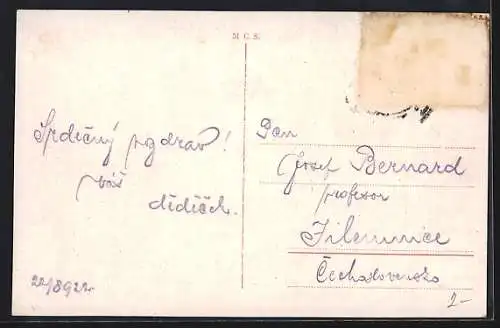 M. C. S.
Srdečný pozdrav!
váš
dědeček.
22/8 922
Pan
Josef Bernard
profesor
Jilemnice
Čechoslovensko
2-